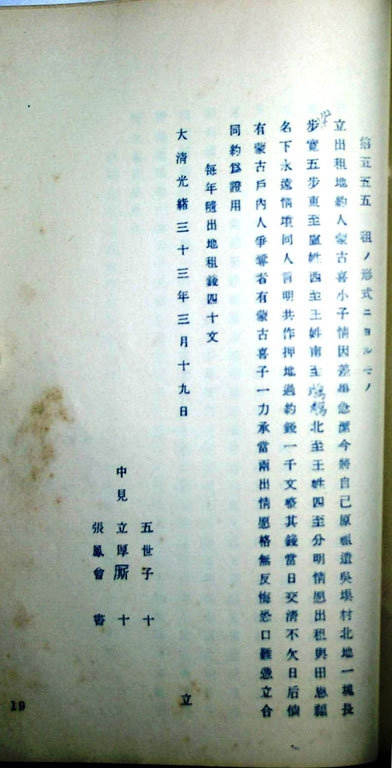 第五五五 租ノ形式ニヨルモノ
立出租地約人蒙古喜小子情因差事急廹今將自己原租遺吳壩村北地一塊長
步寬五步東至盧姓西至王姓南至 北至王姓四至分明情愿出租與田恩福
名下永遠情項同人言明共作押地過約錢一千文整其錢當日交清不欠日后倘
有蒙古戶內人爭奪者有蒙古喜子一力承當兩出情愿格無反悔恐口難憑立合
同約爲證用
每年隨出地租錢四十文
大清光緖三十三年三月十九日
立
五世子 十
中見 立厚 十
張鳳會 書
19